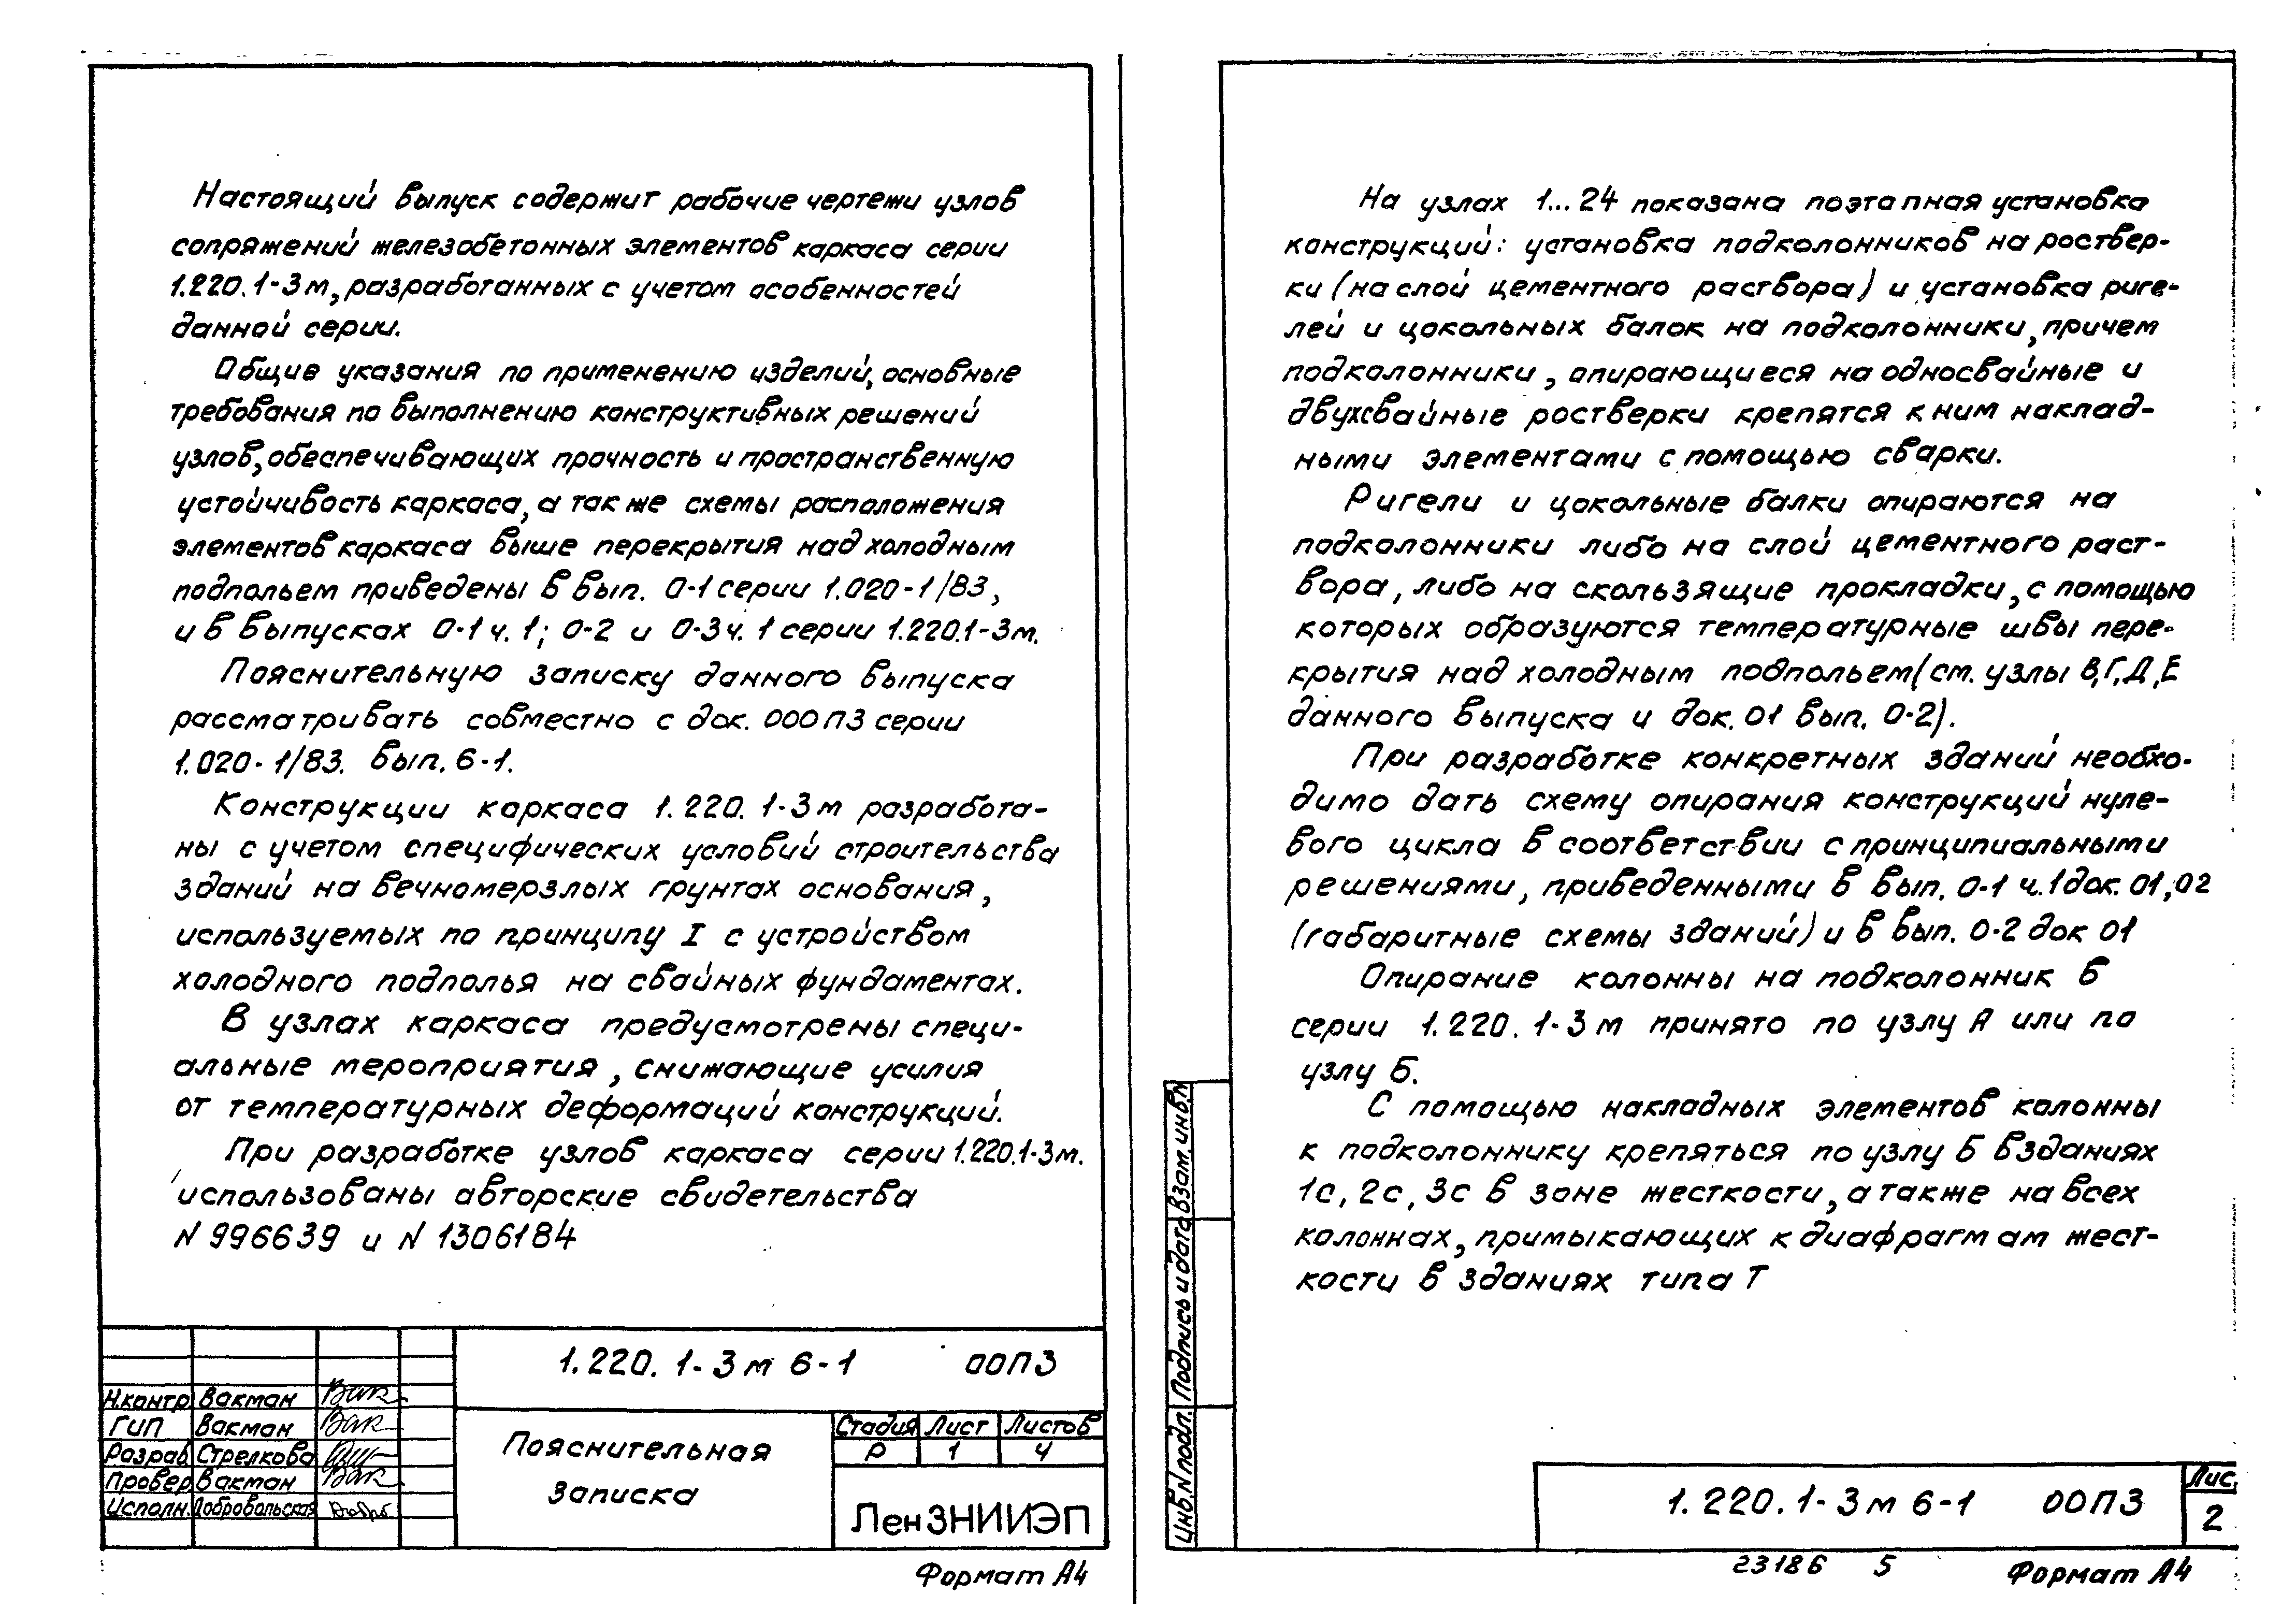 Настоящий выпуск содержит рабочие чертежи узлов
сопряжений железобетонных элементов каркаса серии
1.220.1-3м, разработанных с учетом особенностей
данной серии.
Общие указания по применению изделий, основные
требования по выполнению конструктивных решений
узлов, обеспечивающих прочность и пространственную
устойчивость каркаса, а так же схемы расположения
элементов каркаса выше перекрытия над холодным
подпольем приведены в вып. 0-1 серии 1.020-1/83,
и в выпусках 0-1 ч. 1; 0-2 и 0-3 ч. 1 серии 1.220.1-3м.
Пояснительную записку данного выпуска
рассматривать совместно с док. 000ПЗ серии
1.020-1/83. вып. 6-1.
Конструкции каркаса 1.220.1-3м разработа-
ны с учетом специфических условий строительства
зданий на вечномерзлых грунтах основания,
используемых по принципу I с устройством
холодного подполья на свайных фундаментах.
В узлах каркаса предусмотрены специ-
альные мероприятия, снижающие усилия
от температурных деформаций конструкций.
При разработке узлов каркаса серии 1.220.1-3м.
использованы авторские свидетельства
N 996639 и N 1306184
1.220.1-3м 6-1 00ПЗ
Н.контр Вакман Вак
ГИП Вакман Вак
Разраб Стрелкова
Провер Вакман Вак
Исполн. Добровольская Добр
Пояснительная
Записка
Стадия Лист Листов
Р 1 4
ЛенЗНИИЭП
Формат А4
На узлах 1...24 показана поэтапная установка
конструкций: установка подколонников на роствер-
ки (на слой цементного раствора) и установка риге-
лей и цокольных балок на подколонники, причем
подколонники, опирающиеся на односвайные и
двухсвайные ростверки крепятся к ним наклад-
ными элементами с помощью сварки.
Ригели и цокольные балки опираются на
подколонники либо на слой цементного раст-
вора, либо на скользящие прокладки, с помощью
которых образуются температурные швы пере-
крытия над холодным подпольем (см. узлы В,Г,Д,Е
данного выпуска и док. 01 вып. 0-2).
При разработке конкретных зданий необхо-
димо дать схему опирания конструкций нуле-
вого цикла в соответствии с принципиальными
решениями, приведенными в вып. 0-1 ч.1 док. 01,02
(габаритные схемы зданий) и в вып. 0-2 док 01
Опирание колонны на подколонник в
серии 1.220.1-3м принято по узлу А или по
узлу Б.
С помощью накладных элементов колонны
к подколоннику крепяться по узлу Б в зданиях
1с, 2с, 3с в зоне жесткости, а также на всех
колоннах, примыкающих к диафрагмам жест-
кости в зданиях типа Т
Инв.N подл. Подпись и дата Взам.инв.N
1.220.1-3м 6-1 00ПЗ
Лис.
2
23186 5
Формат А4